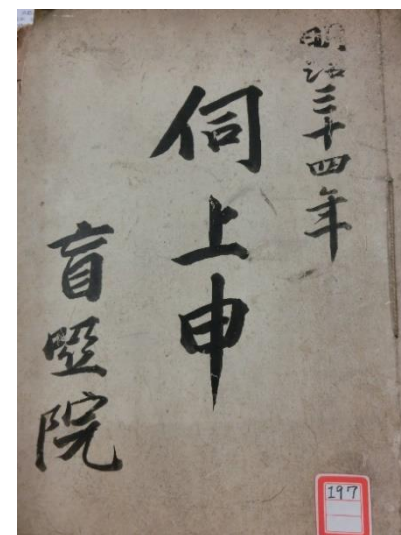 明治三十四年
伺上申
盲唖院
197